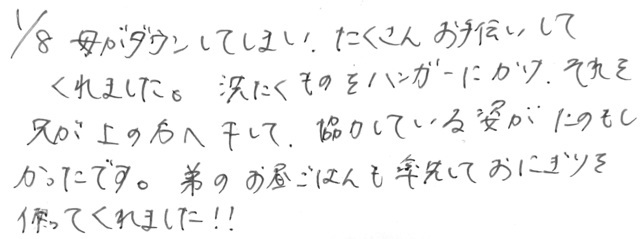 1/8 母がダウンしてしまい、たくさんお手伝いして
くれました。洗たくものをハンガーにかけ、それを
兄が上の方へ干して、協力している姿がたのもし
かったです。弟のお昼ごはんも率先しておにぎりを
作ってくれました!!